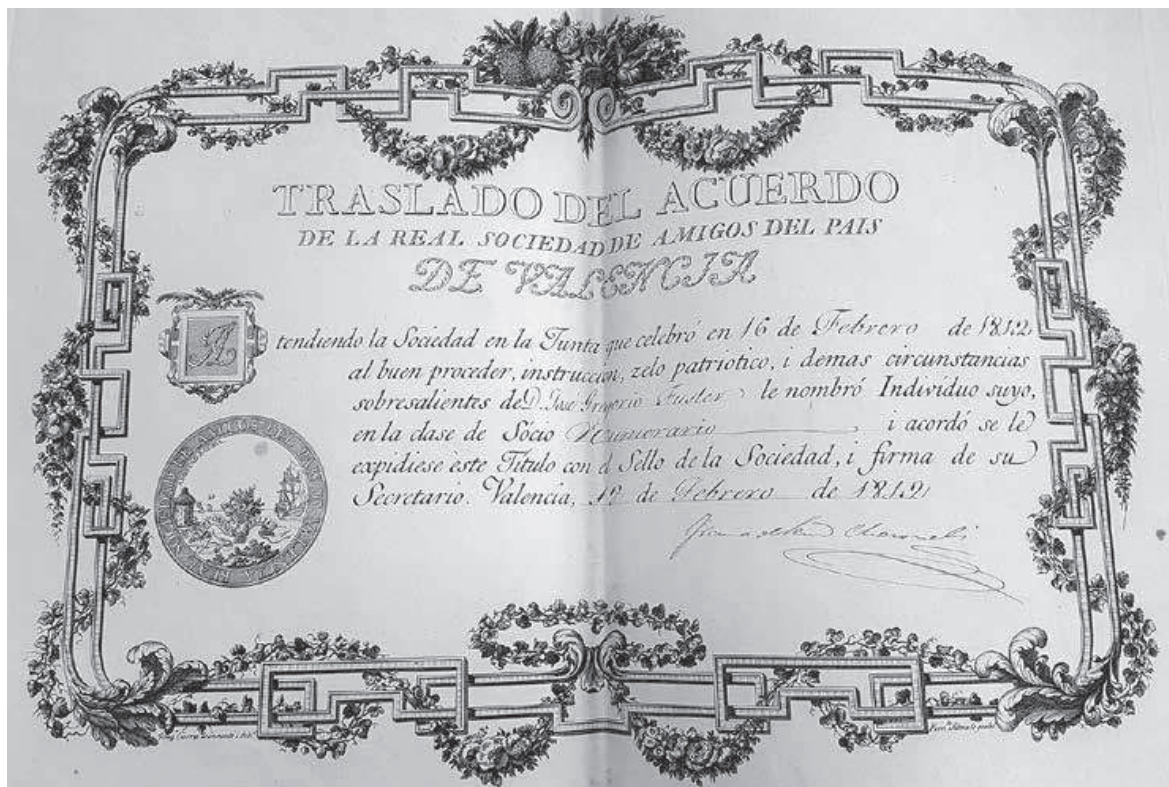 TRASLADO DEL ACUERDO
DE LA REAL SOCIEDAD DE AMIGOS DEL PAIS
DE VALENCIA
A tendiendo la Sociedad en la Junta que celebró en 16 de Febrero de 1812
al buen proceder, instruccion, zelo patriotico, i demas circunstancias
sobresalientes de D. Jose Gregorio Fuster le nombró Individuo suyo,
en la clase de Sócio Numerario i acordó se le
expidiese este Titulo con el Sello de la Sociedad, i firma de su
Secretario. Valencia, de Febrero de